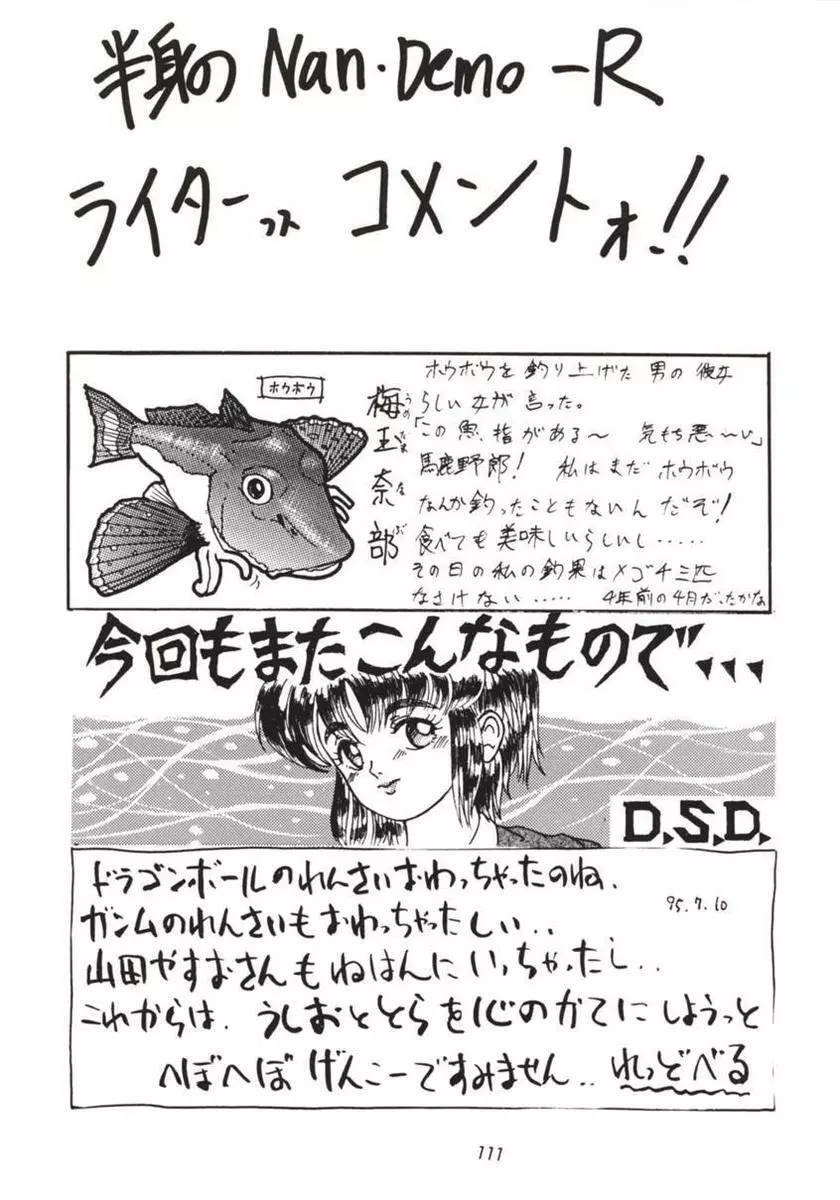 半身のNan・Demo－R
ライターズ コメントォ!!
ホウボウ
梅玉奈部
うめたまなべ
ホウボウを釣り上げた 男の彼女
らしい女が言った。
「この魚、指がある〜 気もち悪〜い」
馬鹿野郎! 私はまだ ホウボウ
なんか釣ったこともないんだぞ!
食べても美味しいらしいし……
その日の私の釣果はメゴチ三匹
なさけない…… 4年前の4月だったかな
今回もまたこんなもので、、、
D.S.D.
ドラゴンボールのれんさいおわっちゃったのね、
95.7.10
ガンムのれんさいもおわっちゃったしい..
山田やすおさんもねはんにいっちゃったし..
これからは、うしおととらを心のかてにしようっと
へぼへぼげんこーですみません.. れっどべる
111